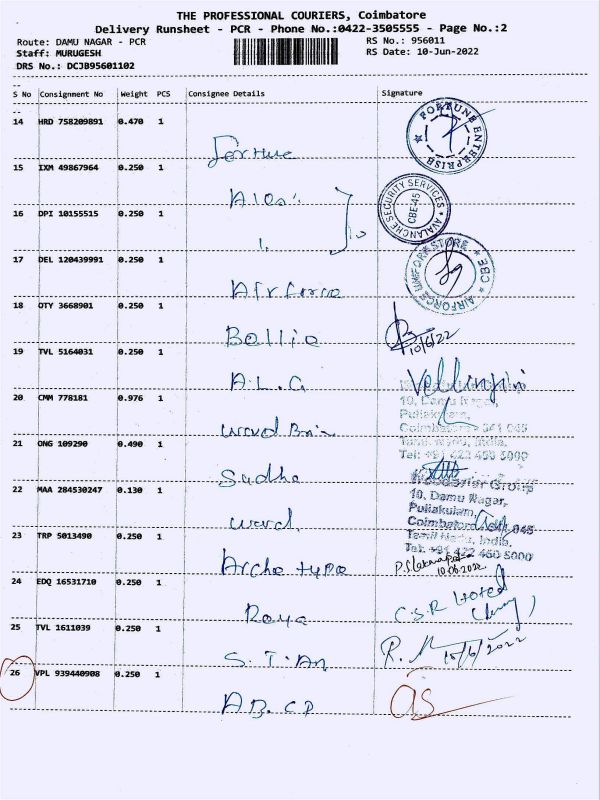 THE PROFESSIONAL COURIERS, Coimbatore
Delivery Runsheet - PCR - Phone No.:0422-3505555 - Page No.:2
Route: DAMU NAGAR - PCR
RS No.: 956011
Staff: MURUGESH
RS Date: 10-Jun-2022
DRS No.: DCJB95601102
S No Consignment No Weight PCS Consignee Details Signature
14 HRD 758209891 0.470 1
FORTUNE ENTERPRISE
Fortune
15 IXM 49867964 0.250 1
AVALANCHE SECURITY SERVICES
CBE-45
16 DPI 10155515 0.250 1
17 DEL 120439991 0.250 1
AIRFORCE UNIFORM STORE CBE
Airforce
18 OTY 3668901 0.250 1
10/6/22
19 TVL 5164031 0.250 1
A.L.G
20 CMM 778181 0.976 1
10, Damu Nagar,
Puliakulam,
Coimbatore - 641 045
Tamil Nadu, India.
Tel: +91 422 450 5000
21 ONG 109290 0.490 1
Sudha
22 MAA 284530247 0.130 1
10, Damu Nagar,
Puliakulam,
Coimbatore 045
Tamil Nadu, India.
Tel: +91 422 450 5000
23 TRP 5013490 0.250 1
Archetype
10.06.2022
24 EDQ 16531710 0.250 1
Roya
C.S.R Hotel
25 TVL 1611039 0.250 1
10/6/2022
26 VPL 939440908 0.250 1